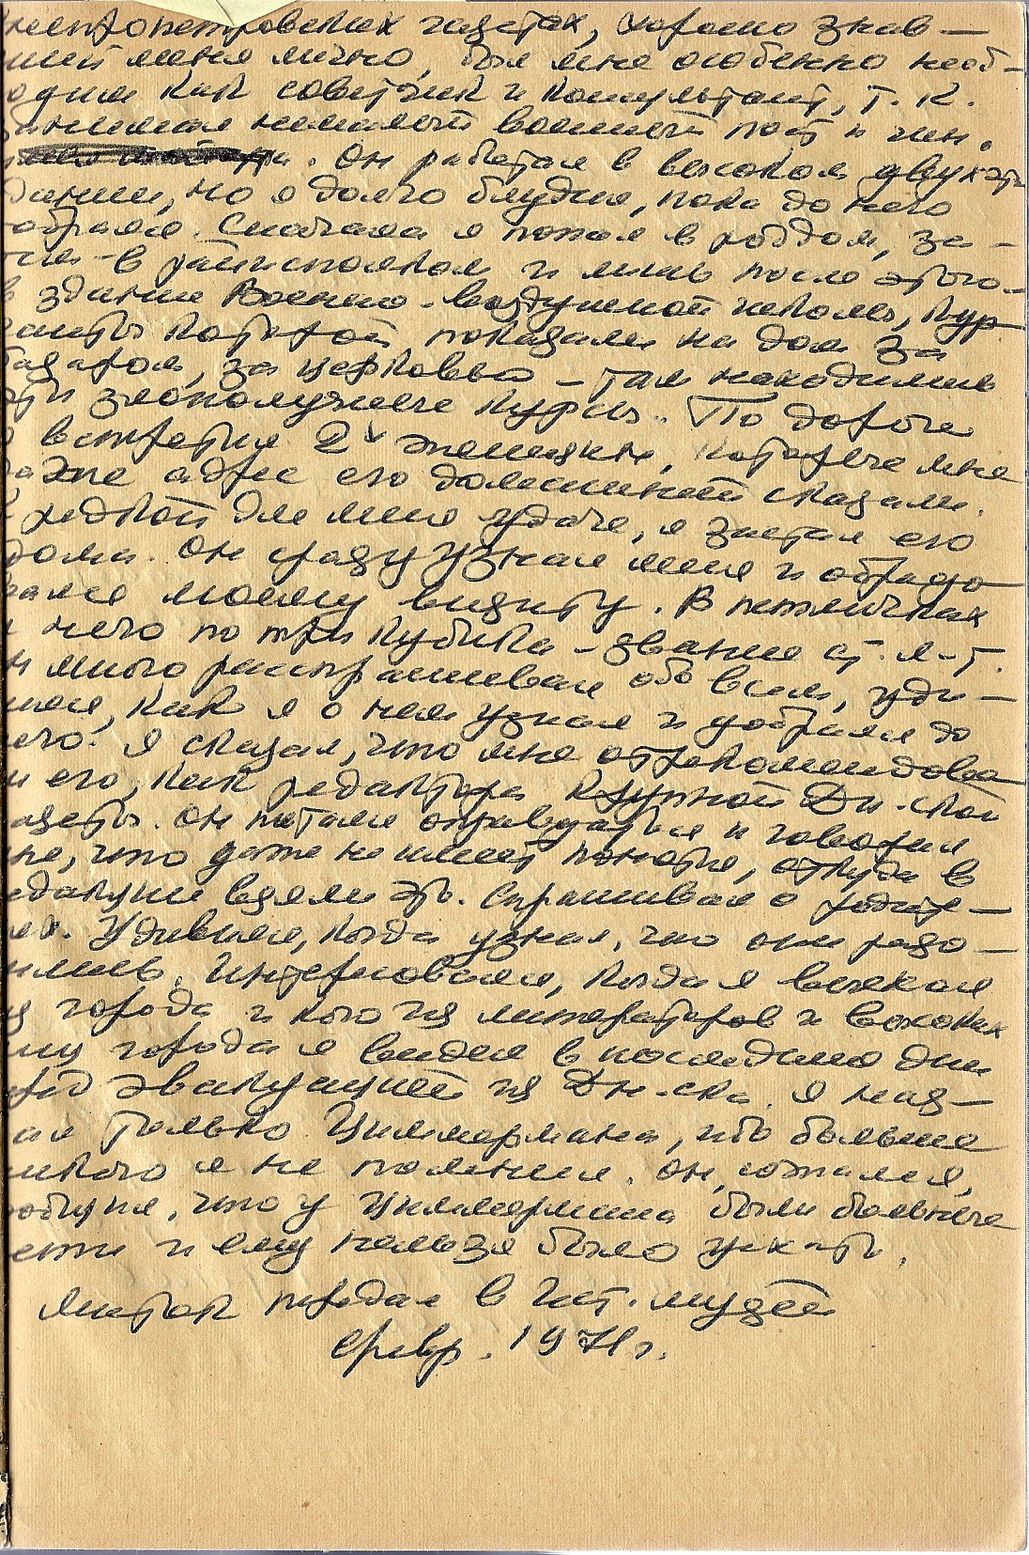 непропетровских газетах, хорошо знав-
ший меня лично, был мне особенно необ-
одим как советчик и консультант, т. к.
занимал немалый военный пост и чин.
Он работал в высоком двухэт
дании, но я долго блудил, пока до него
обрался. Сначала я попал в роддом, за-
тем - в райисполком и лишь после этого-
в здание Военно-воздушной школы, кур
санты которой показали на дом за
базаром, за церковью - там находились
эти злополучные курсы. По дороге
я встретил 2х женщин, которые мне
даже адрес его домашний сказали.
К редкой для меня удаче, я застал его
дома. Он сразу узнал меня и обрадо-
вался моему визиту. В петличках
у него по три кубика - звание ст. л-т.
н много расспрашивал обо всем, уди-
лялся, как я о нем узнал и добрался до
его. Я сказал, что мне отрекомендова
и его, как редактора крупной Дн-ской
азеты. Он пытался оправдаться и говорил
не, что даже не имеет понятия, откуда в
едакции взяли это. Спрашивал о родите-
лях. Удивился, когда узнал, что они разо-
шлись. Интересовался, когда я выехал
из города и кого из литераторов и
му города я видел в последние дни
пред эвакуацией из Дн-ска. Я наз-
вал только Циммермана, ибо больше
никого я не помнил. Он,
общил, что у Циммермана были больные
ети и ему нельзя было уехать.
Листок передал в Ист. музей
февр. 1971 г.